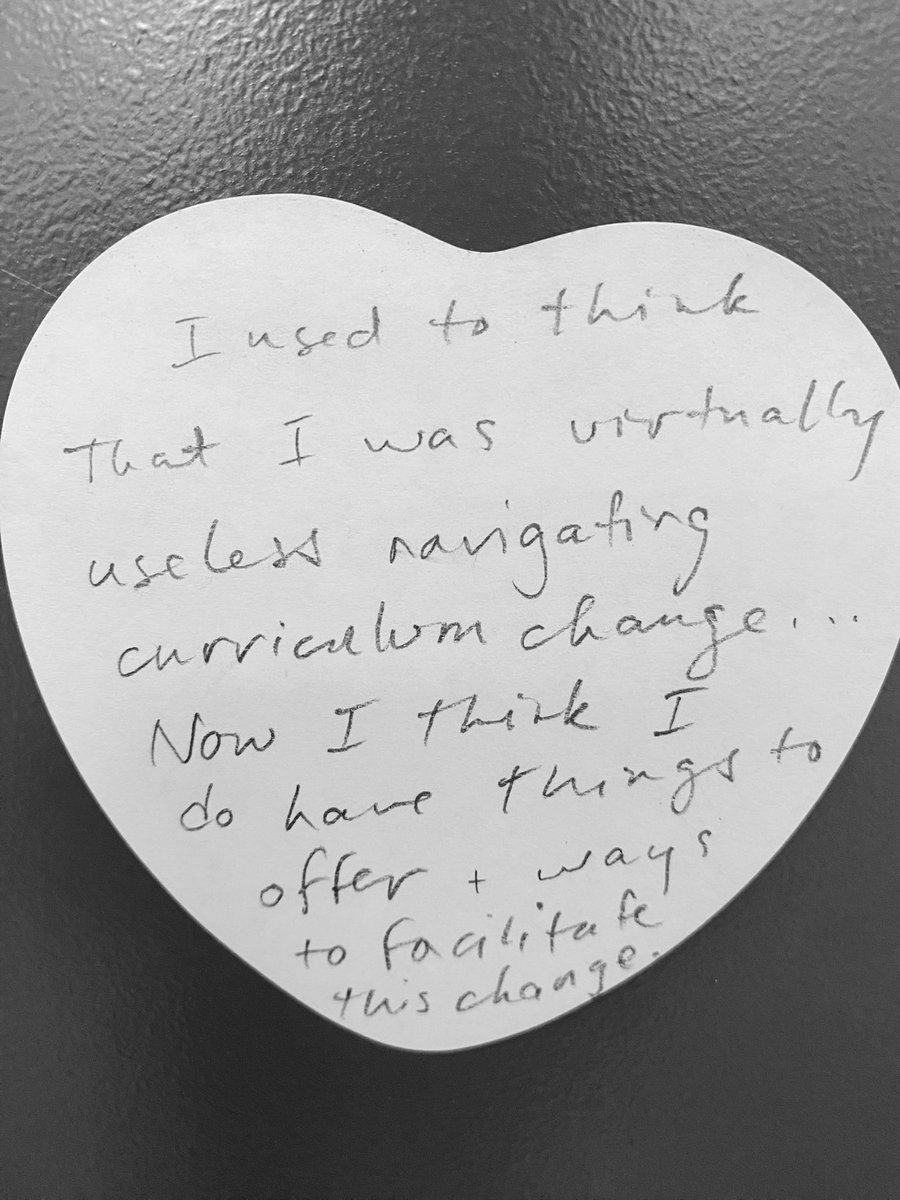 I used to think
that I was virtually
useless navigating
curriculum change....
Now I think I
do have things to
offer + ways
to facilitate
this change.